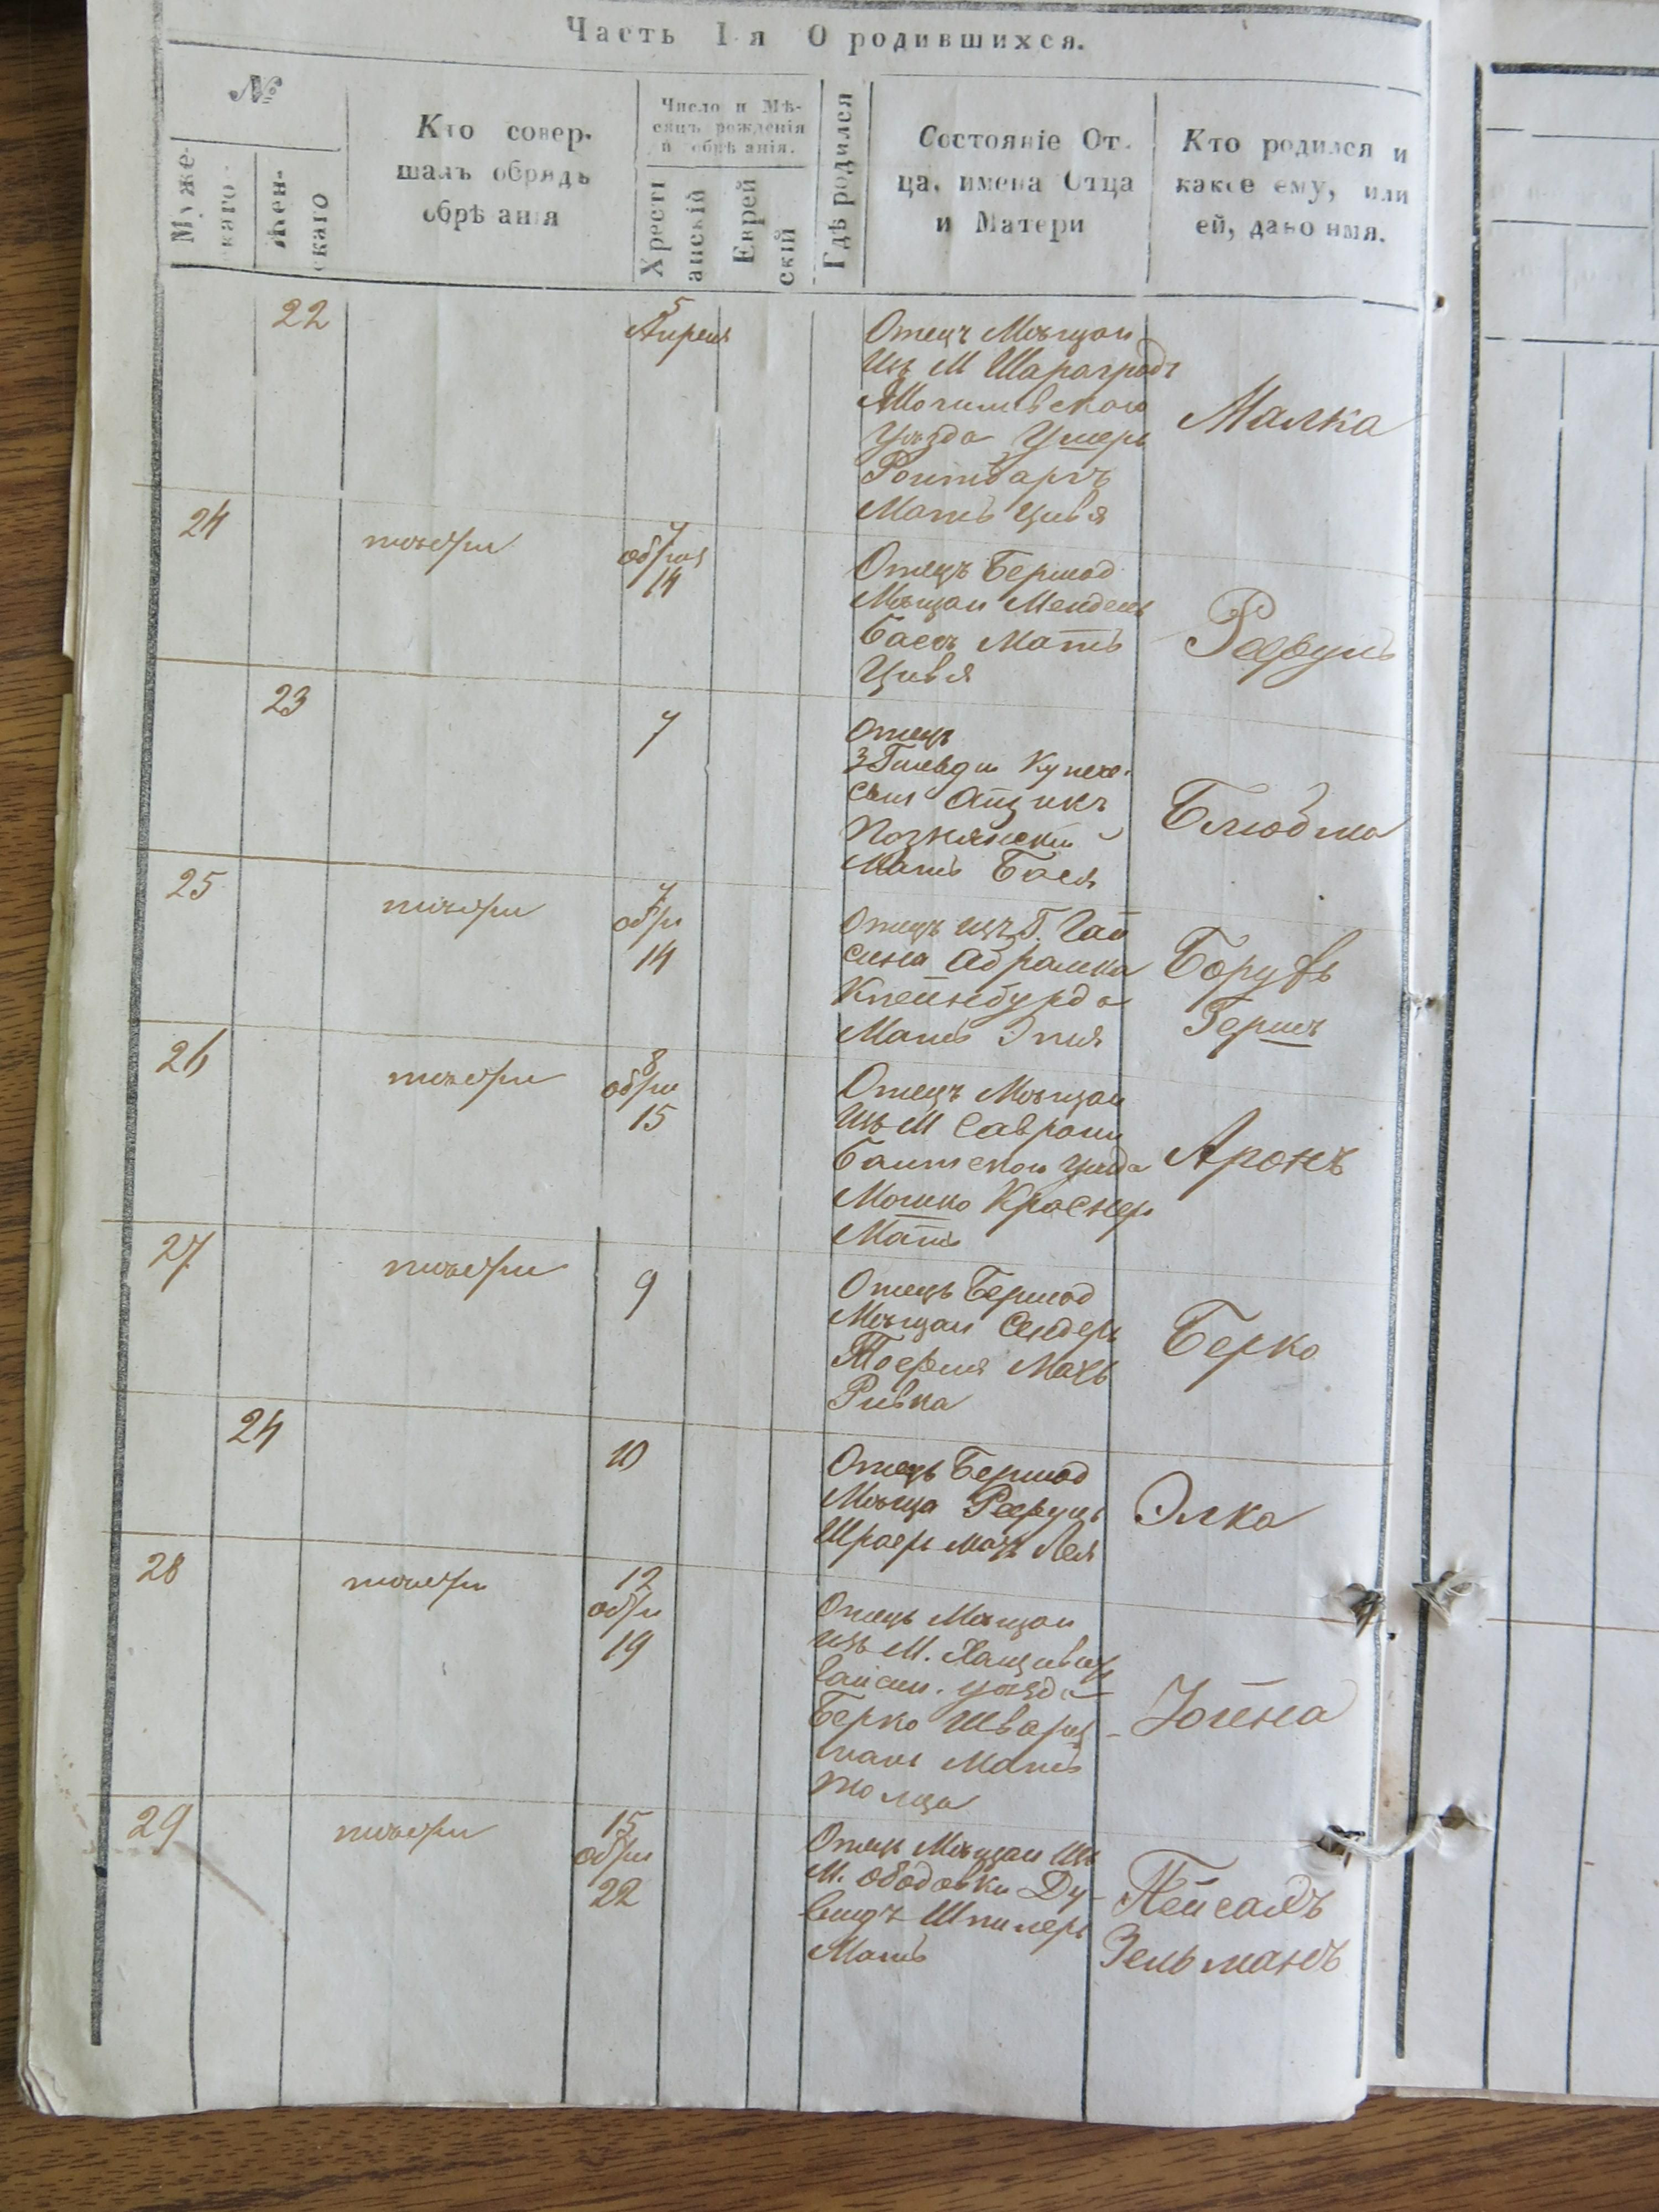 Часть I-я О родившихся.
№
Мужескаго
Женскаго
Кто совер-
шалъ обрядъ
обрѣзанія
Число и Мѣ-
сяцъ рожденія
и обрѣзанія.
Христі
анскій
Еврей
скій
Гдѣ родился
Состояніе От-
ца, имена Отца
и Матери
Кто родился и
какое ему, или
ей, дано имя.
22
5
Апреля
Отецъ Мѣщан
Изъ М Шаргродъ
Могилевского
Уѣзда Умеръ
Роитбаргъ
Мать Цивя
Малка
24
7
14
Отецъ Бершад
Мѣщан Мендель
Мать
Цивя
Рефулъ
23
7
Отецъ
3 Гильди Купече-
Айзикъ
Познянски
Мать Бася
Блюдма
25
7
обр
14
Отецъ изъ Г. Гай
сина Абрамка
Клейнбурда
Мать Эпия
Борухъ
Гершъ
26
8
обр
15
Отецъ Мѣщан
Изъ М Саврани
Балтского Уѣзда
Мошко Краснер
Мать
Аронъ
27
9
Отецъ Бершад
Мѣщан Сендеръ
Мать
Ривка
Берко
24
10
Отецъ Бершад
Мѣща Рефулъ
Шраеръ мать Лея
Элка
28
12
обр
19
Отецъ Мѣщан
изъ М. Хащеват
Гайсин. уѣзда
Берко Шварц
ман Мать
Юйна
29
15
обр
22
Отецъ Мѣщан Изъ
М. Ободовки Ду-
видъ Шпилеръ
Мать
Пейсахъ
Зельманъ